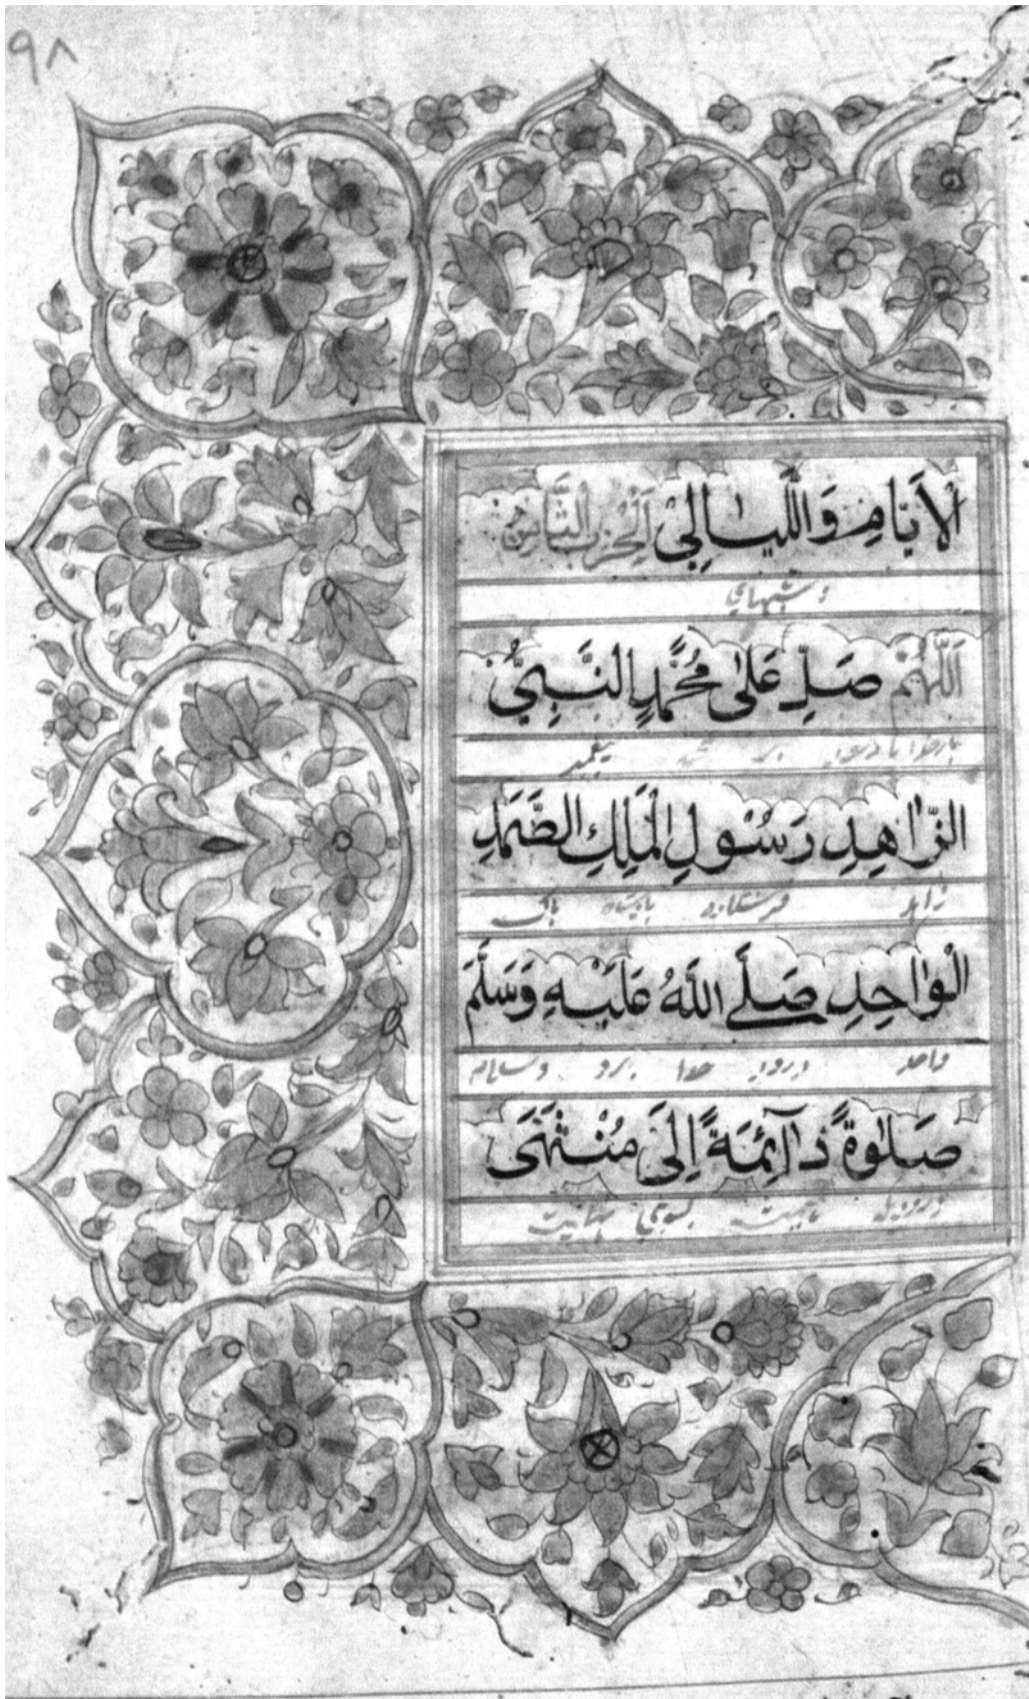 ٩٨
الْاَيَّامِ وَاللَّيَالِيْ اَلْحِزْبُ الثَّامِنُ
و شبهاي
اَللّٰهُمَّ صَلِّ عَلٰى مُحَمَّدٍ النَّبِيِّ
بارخدايا درود بر محمد پيغمبر
الزَّاهِدِ رَسُوْلِ الْمَلِكِ الصَّمَدِ
زاهد فرستاده پادشاه پاك
الْوَاحِدِ صَلَّى اللّٰهُ عَلَيْهِ وَسَلَّمَ
واحد درود خدا برو و سلام
صَلٰوةً دَآئِمَةً اِلٰى مُنْتَهٰى
بسوي نهايت